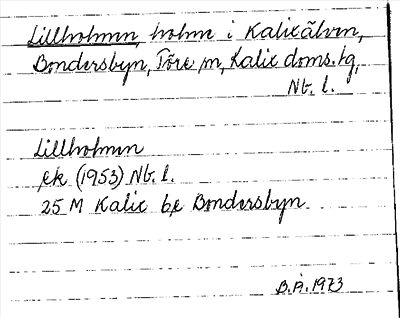 Lillholmen, holme i Kalixälven,
Bondersbyn, Töre sn, Kalix doms. tg,
Nb. l.
Lillholmen
ek (1953) Nb. l.
25 M Kalix be Bondersbyn
B.Å. 1973